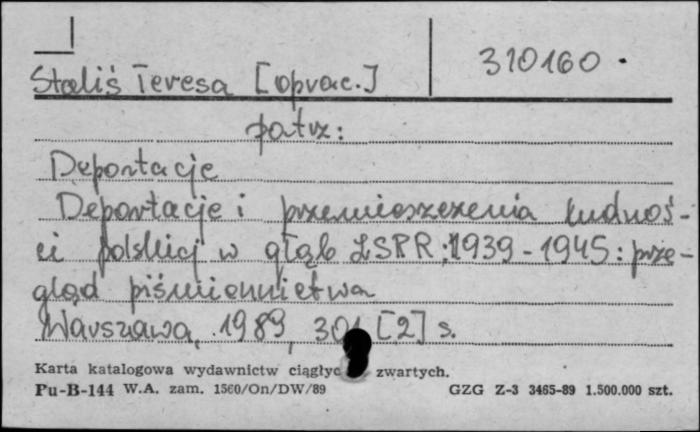 Staliś Teresa [oprac.] 310160.
patrz:
Deportacje
Deportacje i przemieszczenia ludnoś-
ci polskiej w głąb ZSRR: 1939-1945: prze-
gląd piśmiennictwa
Warszawa, 1989, 301 [2] s.
Karta katalogowa wydawnictw ciągłyc zwartych.
Pu-B-144 W.A. zam. 1560/On/DW/89 GZG Z-3 3465-89 1.500.000 szt.